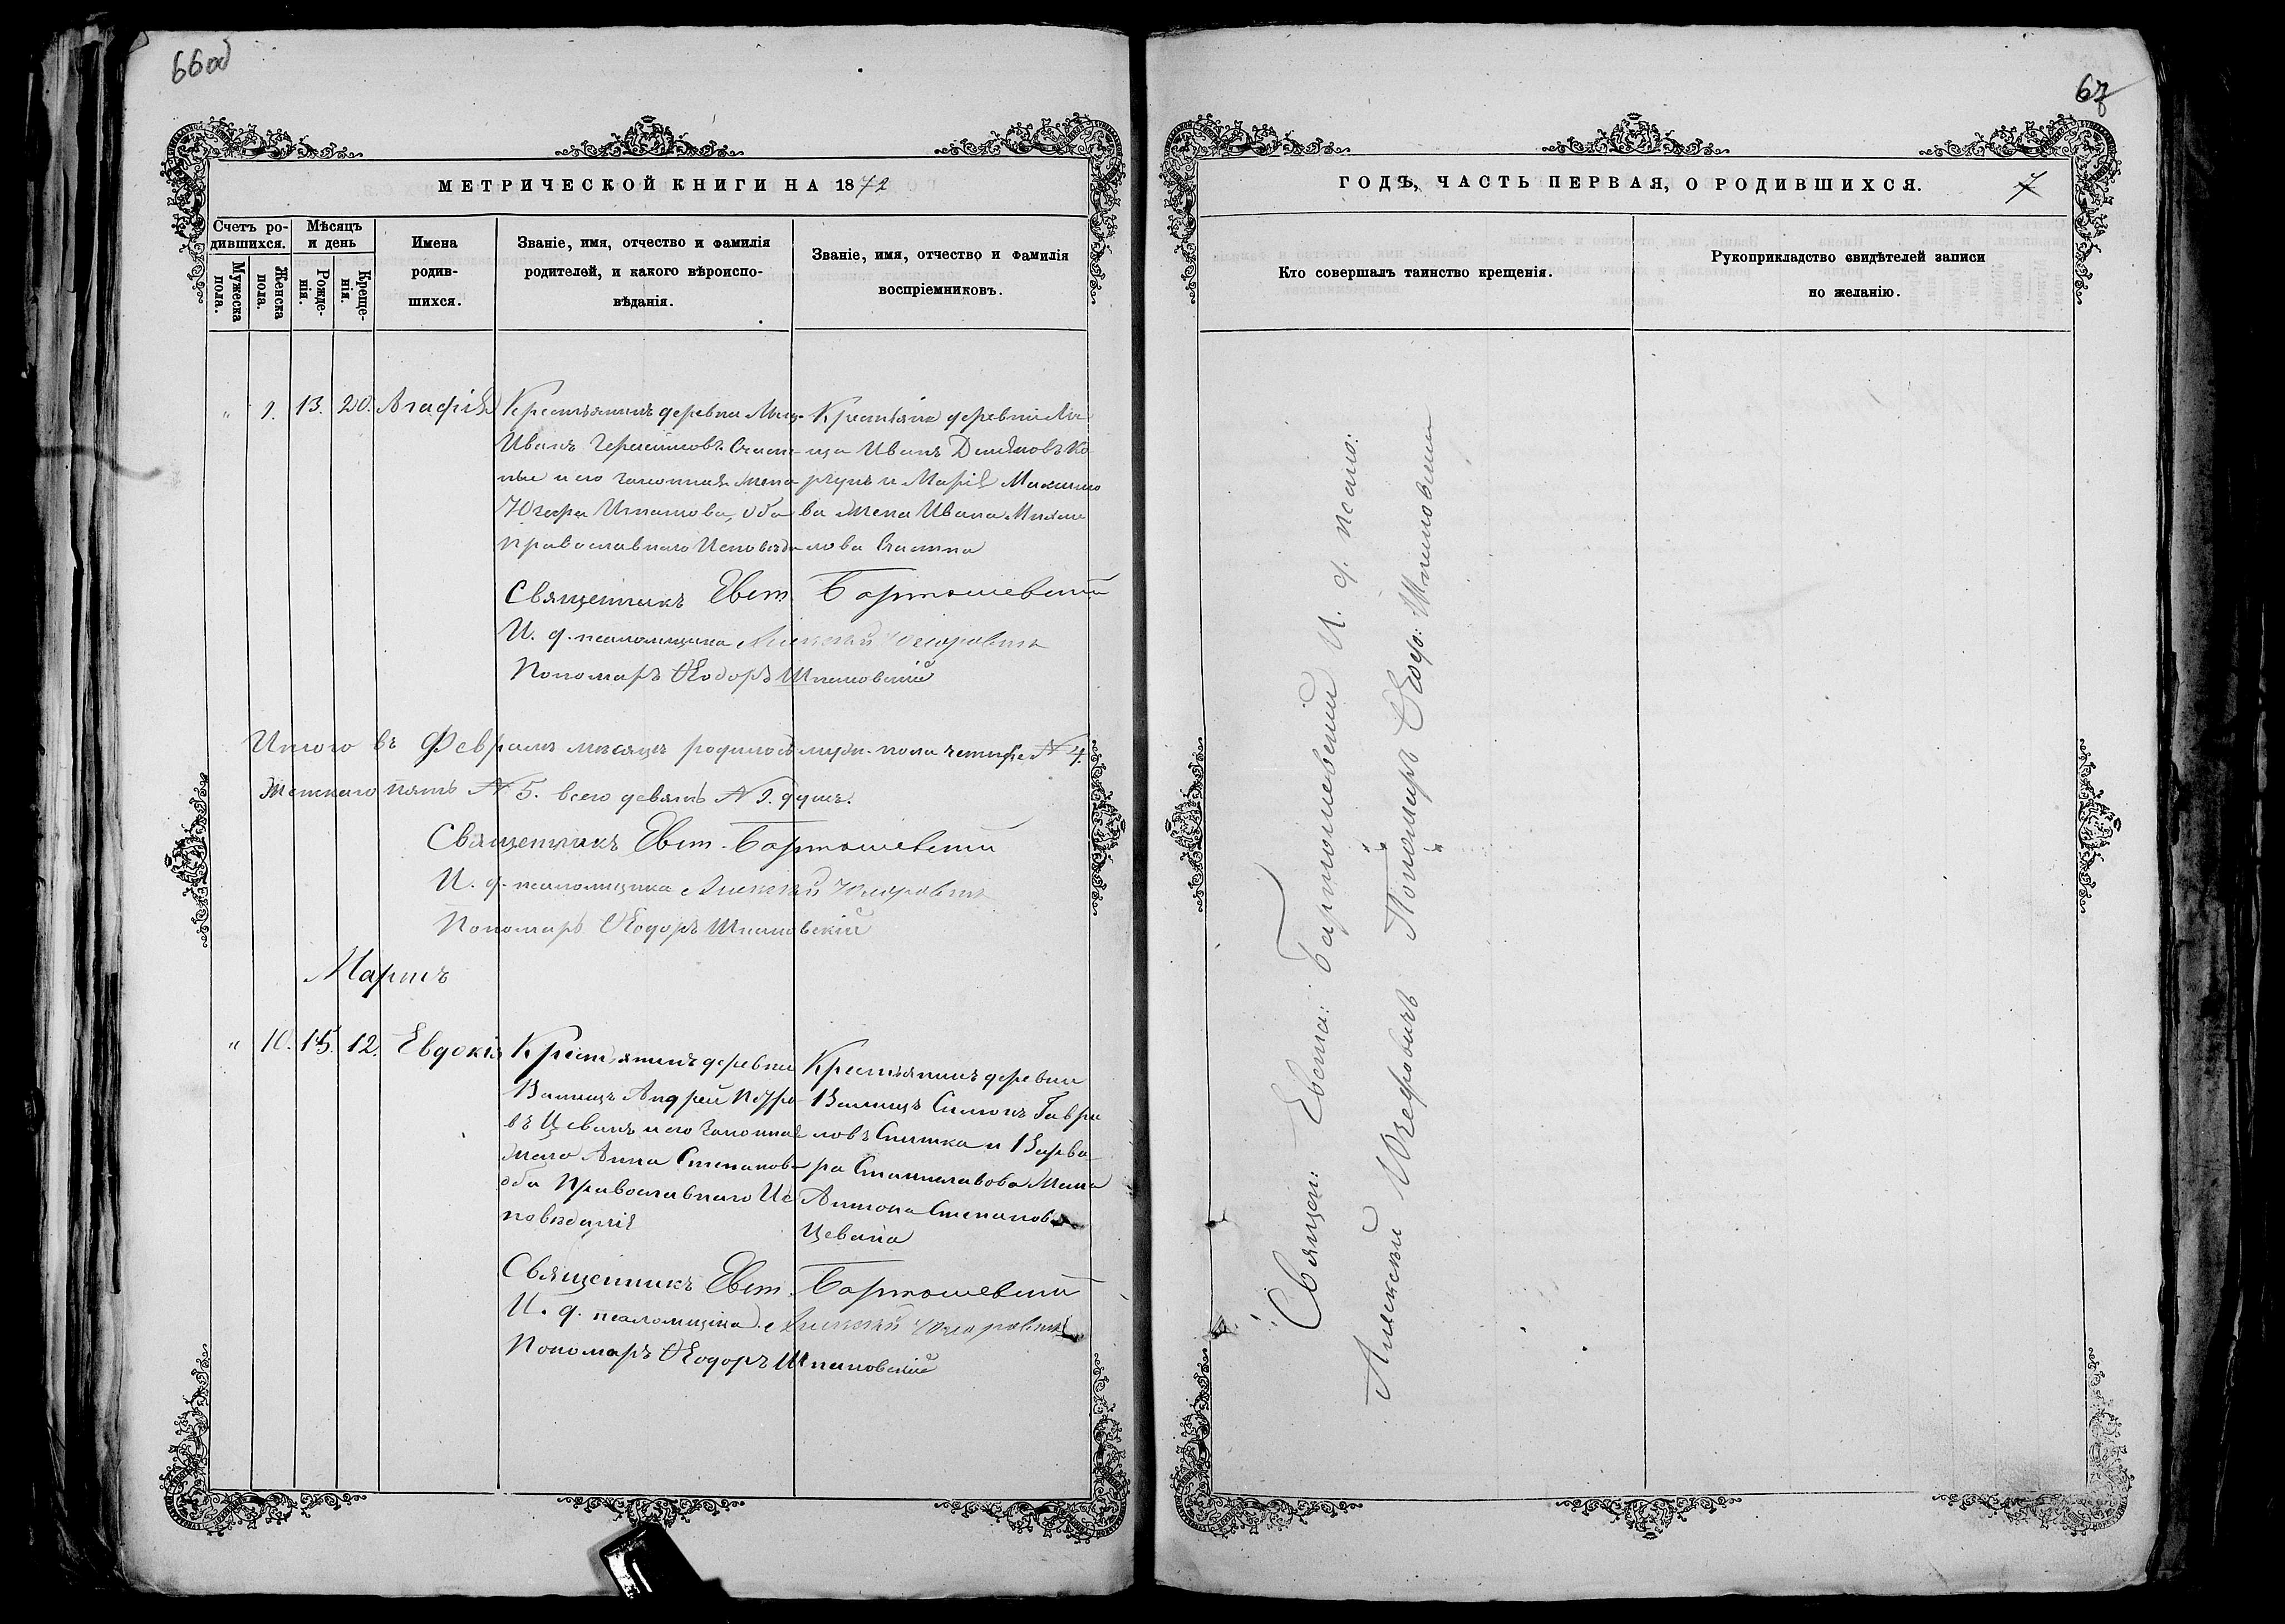 66об
МЕТРИЧЕСКОЙ КНИГИ НА 1872
Счетъ ро-
дившихся.
Мѣсяцъ
и день
Мужеска
пола.
Женска
пола.
Рожде-
нія.
Креще-
нія.
Имена
родив-
шихся.
Званіе, имя, отчество и фамилія
родителей, и какого вѣроиспо-
вѣданія.
Званіе, имя, отчество и фамилія
воспріемниковъ.
" 9. 13. 20. Агафія
Крестьянинъ деревни
Иванъ
и его законная жена
Игнатова, оба
православнаго Исповѣда
Крестьянъ деревни
Иванъ
и Марія Максимо
ва жена Ивана Михаи
лова
Священникъ Евст. Бартошевскій
И. д. псаломщика Алексѣй Юзефовичъ
Пономаръ Ѳеодоръ Шпановскій
Итого въ Февралѣ мѣсяцѣ родилось муж. пола четыре № 4.
Женскаго пять № 5. всего девять № 9. душъ.
Священникъ Евст. Бартошевскій
И. д. псаломщика Алексѣй Юзефовичъ
Пономаръ Ѳеодоръ Шпановскій
Мартъ
" 10. 15. 12. Евдокія
Крестьянинъ деревни
Андрей Петро
въ Цеванъ и его законная
жена Анна Степанов
оба Православнаго Ис
повѣданія
Крестьянинъ деревни
Симонъ Гаври
ловъ и Варва
ра Станиславова жена
Антона Степанова
Цевана
Священникъ Евст. Бартошевскій
И. д. псаломщика Алексѣй Юзефовичъ
Пономаръ Ѳеодоръ Шпановскій
67
ГОДЪ, ЧАСТЬ ПЕРВАЯ, О РОДИВШИХСЯ.
7
Кто совершалъ таинство крещенія.
Рукоприкладство свидѣтелей записи
по желанію.
Священ: Евста: Бартошевскій И. д. псало:
Алексѣй Юзефовичъ Пономаръ Ѳеод: Шпановскій